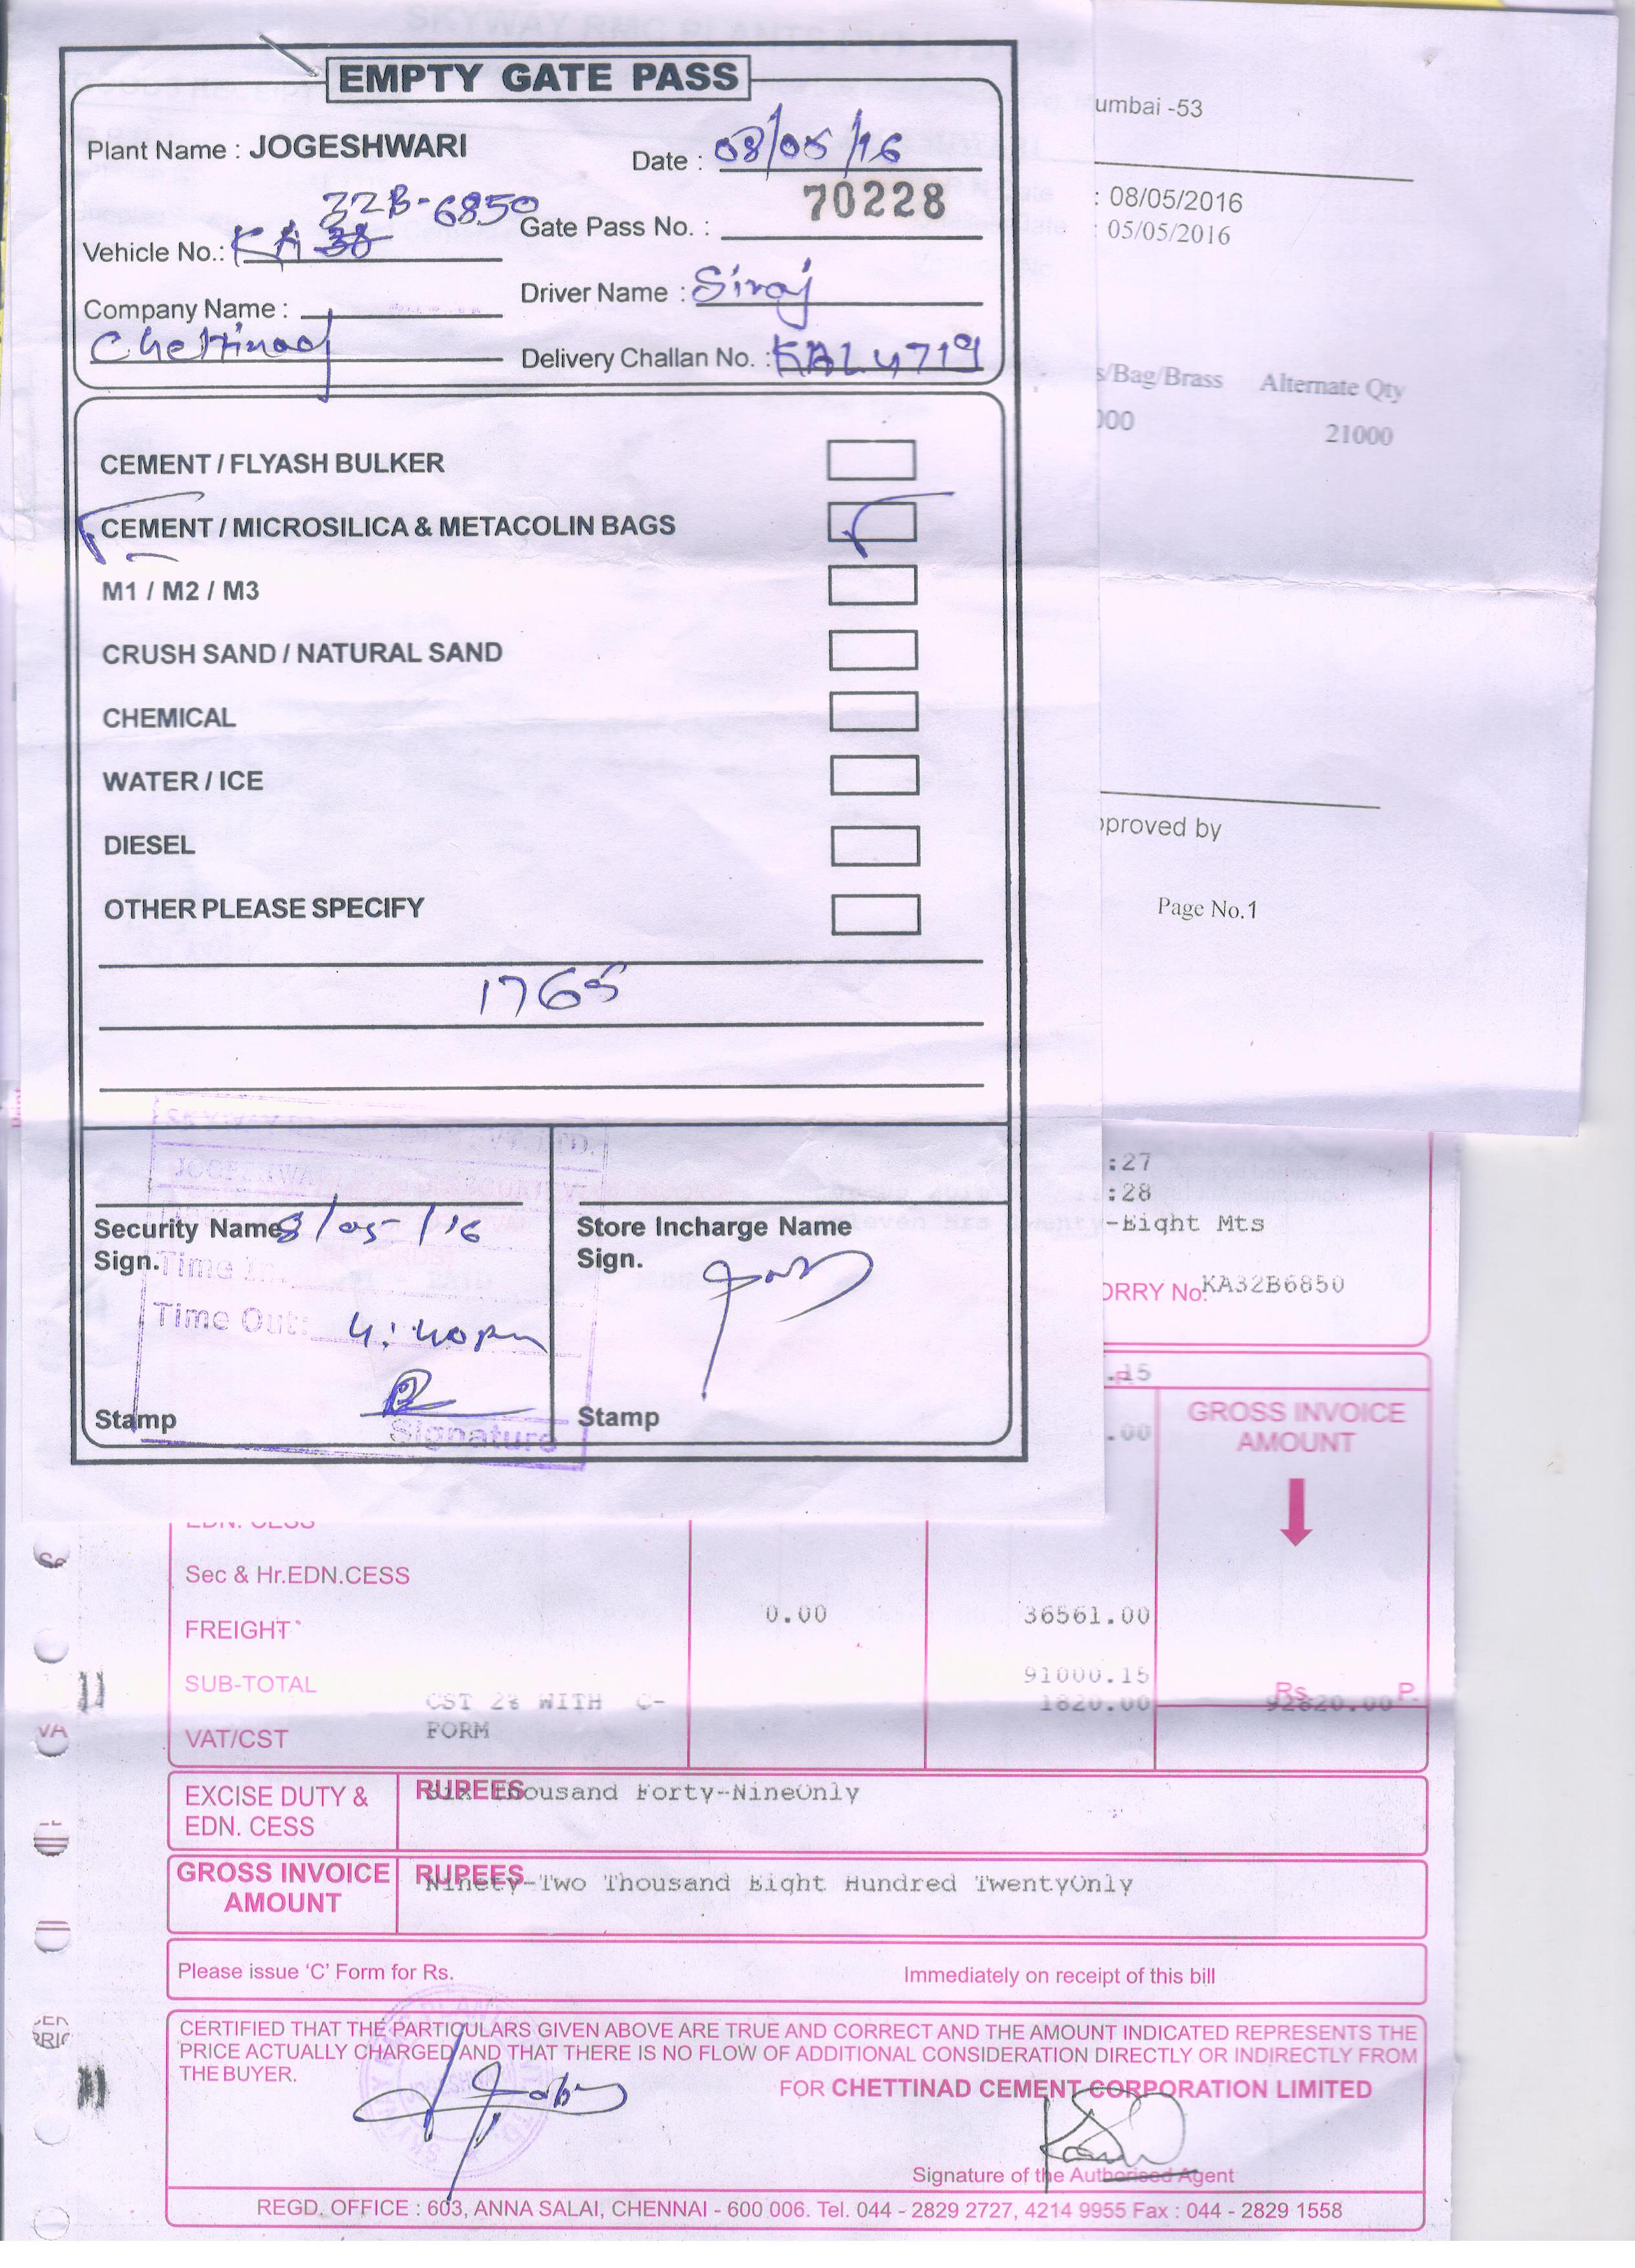 EMPTY GATE PASS
Plant Name : JOGESHWARI
Date : 08/05/16
Vehicle No.: KA 38 32B-6850
Gate Pass No. : 70228
Company Name :
Chettinad
Driver Name : Siraj
Delivery Challan No. : KAL4719
CEMENT / FLYASH BULKER
CEMENT / MICROSILICA & METACOLIN BAGS
M1 / M2 / M3
CRUSH SAND / NATURAL SAND
CHEMICAL
WATER / ICE
DIESEL
OTHER PLEASE SPECIFY
1765
Security Name 8/05/16
Sign.
Time In:
Time Out: 4:40pm
Stamp
Signature
Store Incharge Name
Sign.
Stamp
umbai -53
: 08/05/2016
: 05/05/2016
s/Bag/Brass Alternate Qty
000 21000
pproved by
Page No.1
:27
:28
-Eight Mts
ORRY No. KA32B6850
.15
.00
GROSS INVOICE
AMOUNT
EDN. CESS
Sec & Hr.EDN.CESS
FREIGHT 0.00 36561.00
SUB-TOTAL 91000.15
CST 2% WITH C- 1820.00
Rs. P.
92820.00
VAT/CST FORM
EXCISE DUTY &
EDN. CESS
RUPEES Six Thousand Forty-NineOnly
GROSS INVOICE
AMOUNT
RUPEES Ninety-Two Thousand Eight Hundred TwentyOnly
Please issue 'C' Form for Rs. Immediately on receipt of this bill
CERTIFIED THAT THE PARTICULARS GIVEN ABOVE ARE TRUE AND CORRECT AND THE AMOUNT INDICATED REPRESENTS THE
PRICE ACTUALLY CHARGED AND THAT THERE IS NO FLOW OF ADDITIONAL CONSIDERATION DIRECTLY OR INDIRECTLY FROM
THE BUYER.
FOR CHETTINAD CEMENT CORPORATION LIMITED
Signature of the Authorised Agent
REGD. OFFICE : 603, ANNA SALAI, CHENNAI - 600 006. Tel. 044 - 2829 2727, 4214 9955 Fax : 044 - 2829 1558